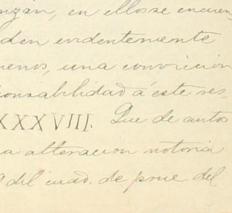 en ellos se encuen
den evidentemente
enos, una conviccion
onsabilidad á éste res
XXXVIII. Que de autos
a alteracion notoria
del cuad. de prue del